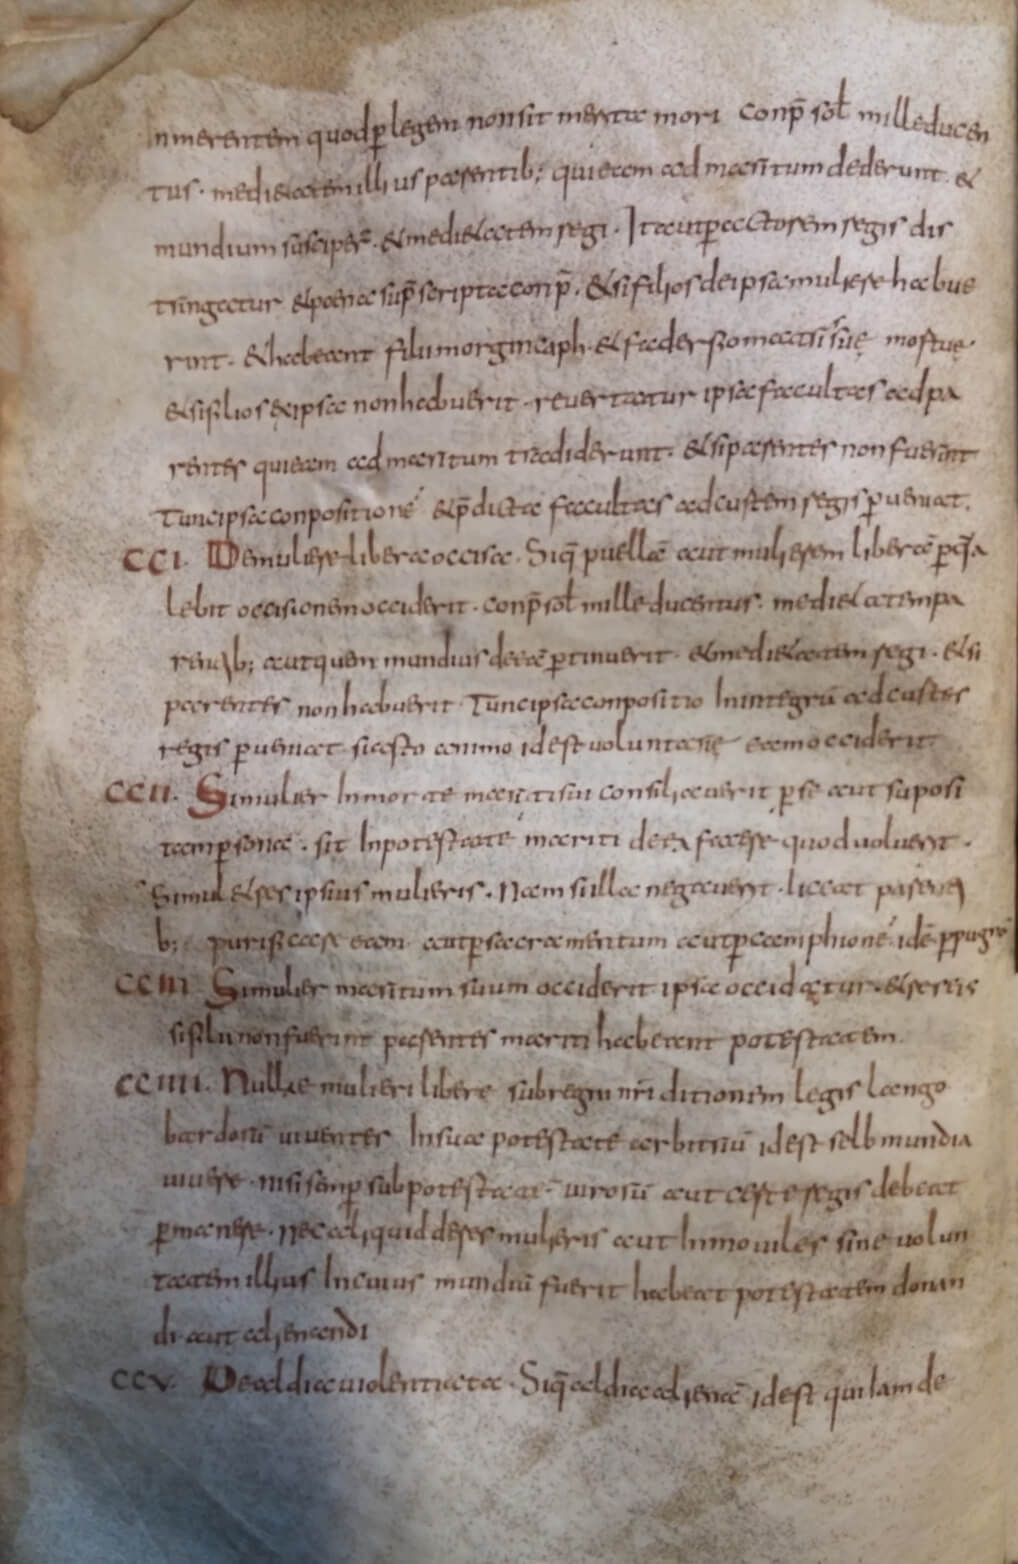 Inmerentem quod p̱ legem non sit merita mori conp̄ sol mille ducen
tus. medi&atem illius parentib; qui eam ad maritum dederunt. &
mundium susciper̄. & medi&atem regi. Ita ut p̱ actorem regis dis
tringatur & poena sup̄ scripta conp̄. & si filios de ipsa muliere habue
rint. & habeant filii morgincaph. & faderfio matri sue mortue.
& si filios ex ipsa non habuerit. revertatur ipsa facultas ad pa
rentes qui eam ad maritum tradiderunt. & si parentes non fuerint
Tunc ipsa conpositione & p̄dicta facultas ad curtem regis p̱ueniat.
CCI. De muliere libera occisa. Siq̄ puellā aut mulierem liberā p̱
lebit occisionem occiderit. conp̄ sol mille ducentus. medi&atem pa
rentib; aut quem mundius de eā p̱tinuerit. & medi&atem regi. & si
parentes non habuerit. Tunc ipsa conpositio In integrū ad curtes
regis p̱ueniat. si asto animo id est uoluntariȩ eam occiderit
CCII. Si mulier In morte mariti sui consiliauerit p̱ se aut suposi
tam p̱sona. sit In potestate mariti de ea facere quod uoluerit.
Simul & res ipsius mulieris. Nam si illa negauerit. liceat parenti
b; purificare eam. aut p̱ sacramentum aut p̱ camphione idē p̱ pugnā
CCIII Si mulier maritum suum occiderit ipsa occidatur. & si res eius
si filii non fuerint parentes mariti habeant potestatem.
CCIIII. Nullae mulieri libere sub regni nr̄i ditionem legis lango
bardorū uiuentes In sua potestate arbitriū id est selbmundia
uiuere. nisi semp̱ sub potestate uirorū aut certe regis debeat
p̱manere. nec aliquid de res mulieris aut Inmouiles sine uolun
tatem illius In cuius mundiū fuerit habeat potestatem donan
di aut alienandi
CCV. De aldia uiolentiata. Siq̄ aldia alienā id est qui iam de